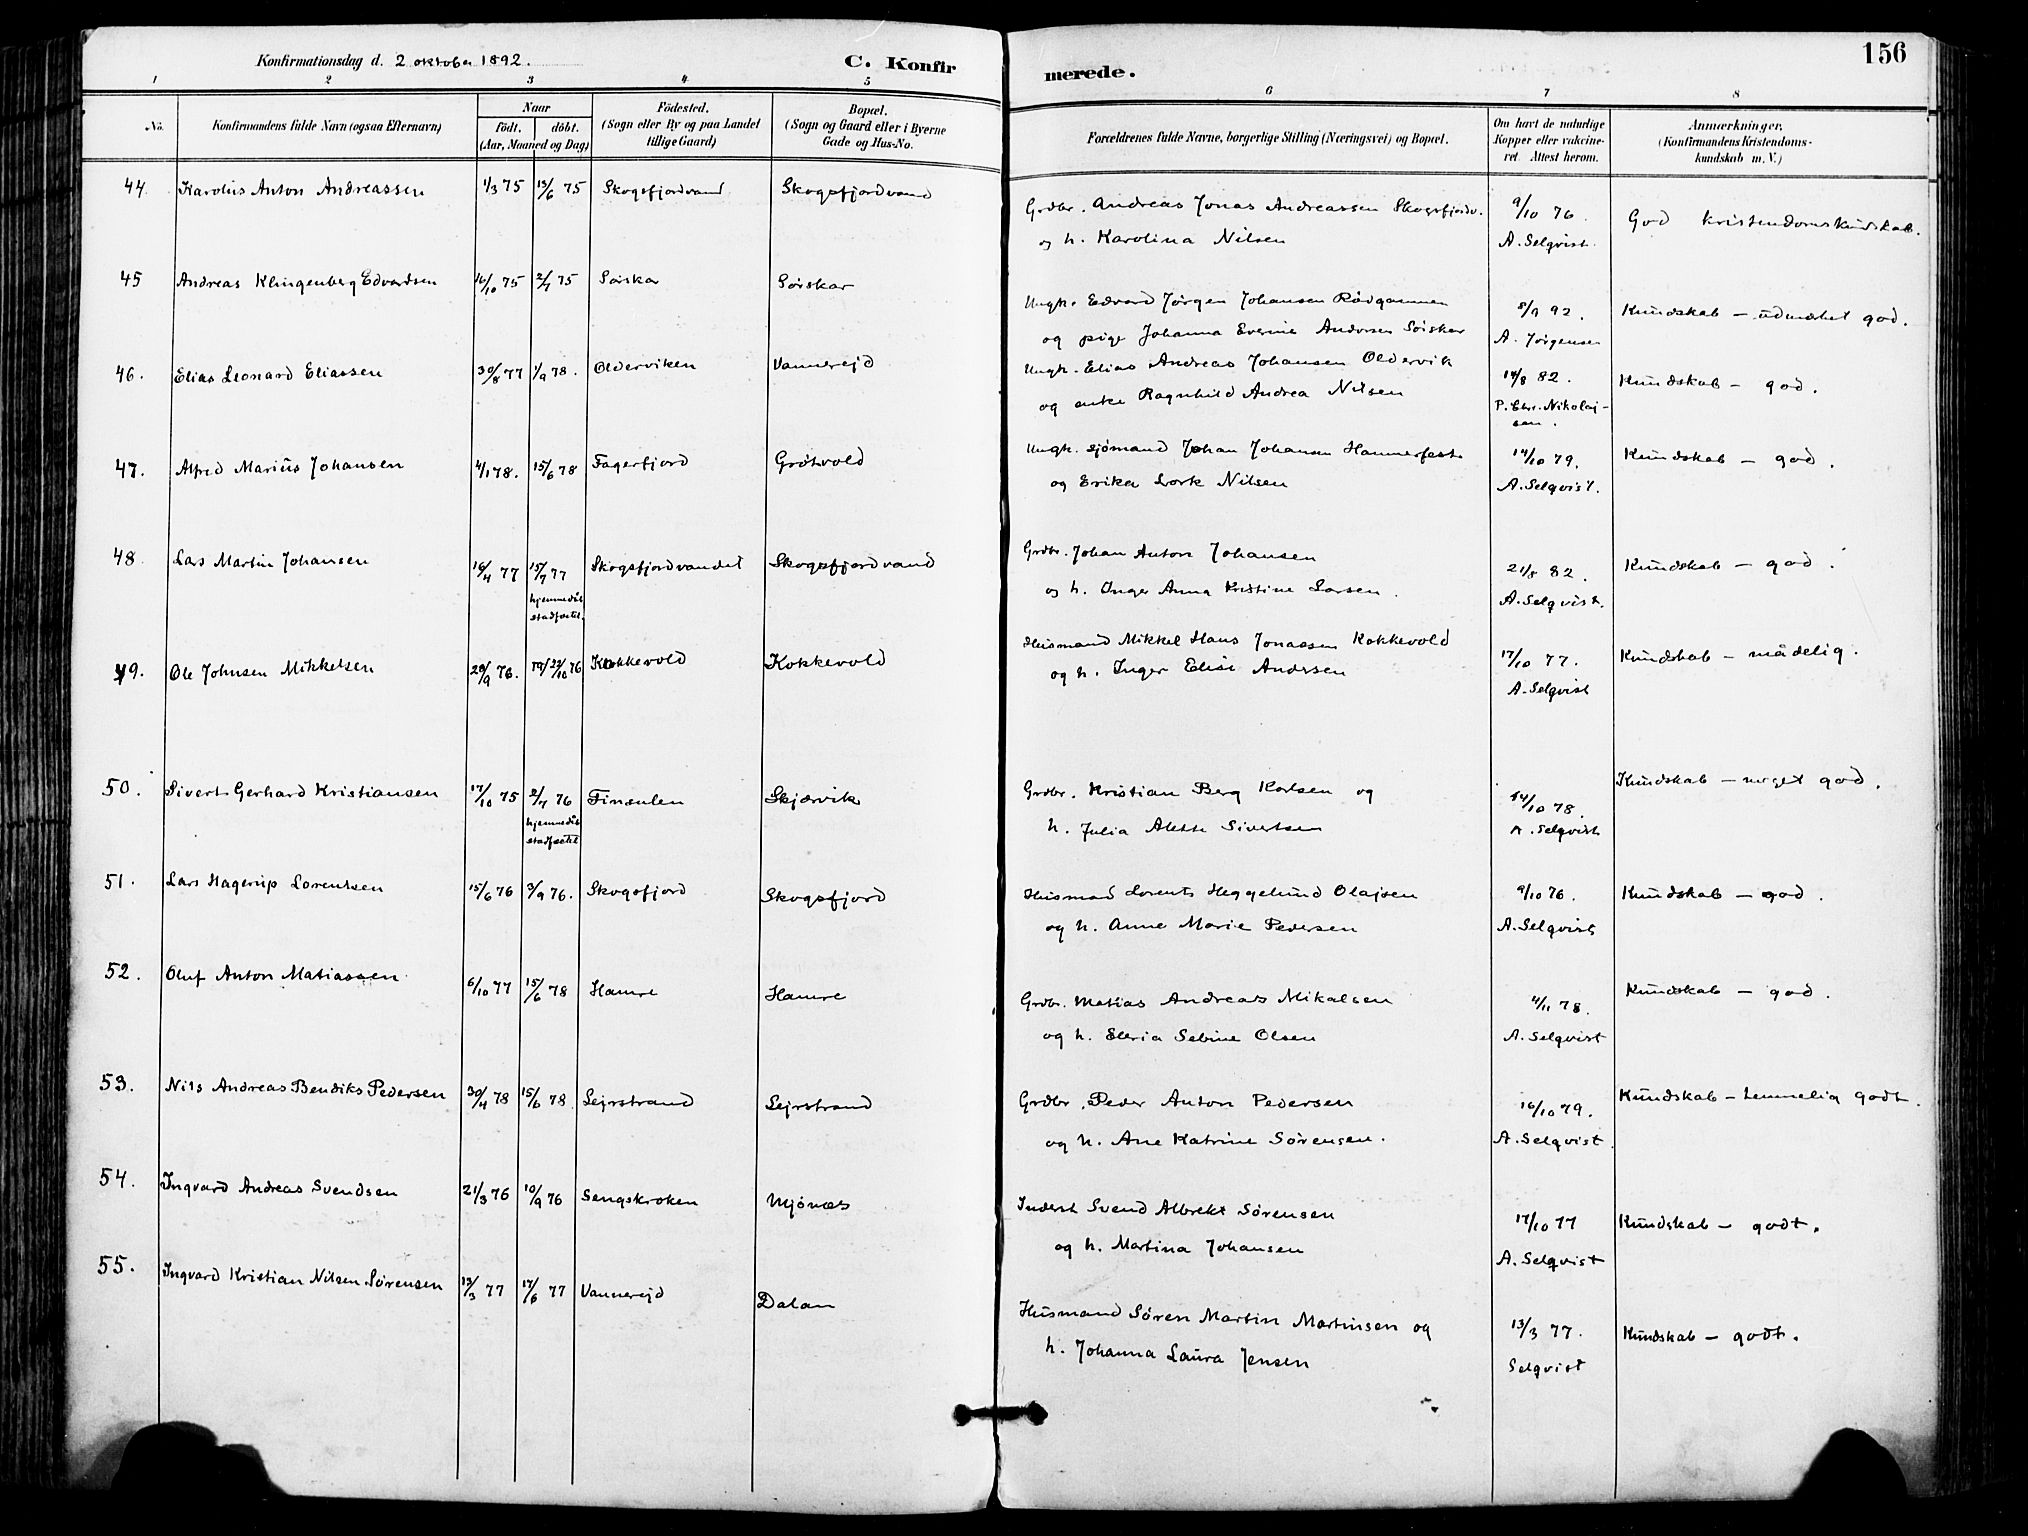 156
Konfirmationsdag d. 2 oktober 1892.
C. Konfir
merede.
1 2 3 4 5 6 7 8
No.
Konfirmandens fulde Navn (ogsaa Efternavn)
Naar
født. døbt.
(Aar, Maaned og Dag)
Fødested.
(Sogn eller By og paa Landet
tillige Gaard)
Bopæl.
(Sogn og Gaard eller i Byerne
Gade og Hus-No.
Forældrenes fulde Navne, borgerlige Stilling (Næringsvei) og Bopæl.
Om havt de naturlige
Kopper eller vakcine-
ret. Attest herom.
Anmærkninger,
(Konfirmandens Kristendoms-
kundskab m. V.)
44. Karolus Anton Andreassen 1/3 75 13/6 75 Skogsfjordvand Skogsfjordvand
Grdbr. Andreas Jonas Andreassen Skogsfjordv. 9/10 76. God kristendomskundskab.
og h. Karolina Nilsen A. Selqvist.
45 Andreas Klingenberg Edvardsen 16/10 75 2/7 75 Sörskar Sörskar
Ungk. Edvard Jörgen Johansen Rödgammen 8/9 92. Kundskab – udmærket god.
og pige Johanna Everine Andersen Söiskar A. Jörgensen
46. Elias Leonard Eliassen 30/8 77 1/9 78. Olderviken Vannerejd
Ungk. Elias Andreas Johansen Oldervik 14/8 82. Kundskab – god.
og enke Ragnhild Andrea Nilsen P. Chr. Nikolaj-
sen.
47. Alfred Marius Johansen 4/1 78. 15/6 78 Fagerfjord Grötvold
Ungk. sjömand Johan Johansen Hammerfest 14/10 79. Kundskab – god.
og Erika Lork Nilsen A. Selqvist.
48. Lars Martin Johansen 16/4 77 15/7 77 Skogsfjordvandet Skogsfjordvand
hjemmedöb
stadfæstet.
Grdbr. Johan Anton Johansen 21/8 82. Kundskab – god.
og h. Inger Anna Kristine Larsen. A. Selqvist.
49. Ole Johnsen Mikkelsen 29/9 76. 22/10 76 Kokkevold Kokkevold
Husmand Mikkel Hans Jonassen Kokkevold 17/10 77. Kundskab – mådelig.
og h. Inger Elise Andersen A. Selqvist
50. Sivert Gerhard Kristiansen 17/10 75 2/7 76 Finnsulen Skjærvik
hjemmedöb
stadfæstet
Grdbr. Kristian Berg Karlsen og 14/10 78. Kundskab – meget god.
h. Julia Alette Sivertsen A. Selqvist
51. Lars Hagerup Lorentsen 15/6 76 3/9 76. Skogsfjord Skogsfjord
Husmad Lorents Heggelund Olajsen 9/10 76. Kundskab – god.
og h. Anne Marie Pedersen A. Selqvist
52. Oluf Anton Matiassen 6/10 77 15/6 78 Hamre Hamre
Grdbr. Matias Andreas Mikalsen 4/11 78. Kundskab – god.
og h. Eleria Sebine Olsen A. Selqvist
53. Nils Andreas Bendiks Pedersen 30/4 78 15/6 78. Lejrstrand Lejrstrand
Grdbr. Peder Anton Pedersen 16/10 79. Kundskab – temmelig godt.
og h. Ane Katrine Sörensen. A. Selqvist.
54. Ingvard Andreas Svendsen 21/3 76 10/9 76 Sengskroken Mjönæs
Inderst Svend Albrekt Sörensen 17/10 77 Kundskab – godt.
og h. Martina Johansen A. Selqvist
55. Ingvard Kristian Nilsen Sörensen 13/3 77 17/6 77 Vannerejd Dalan
Husmand Sören Martin Martinsen og 13/3 77. Kundskab – godt.
h. Johanna Laura Jensen Selqvist